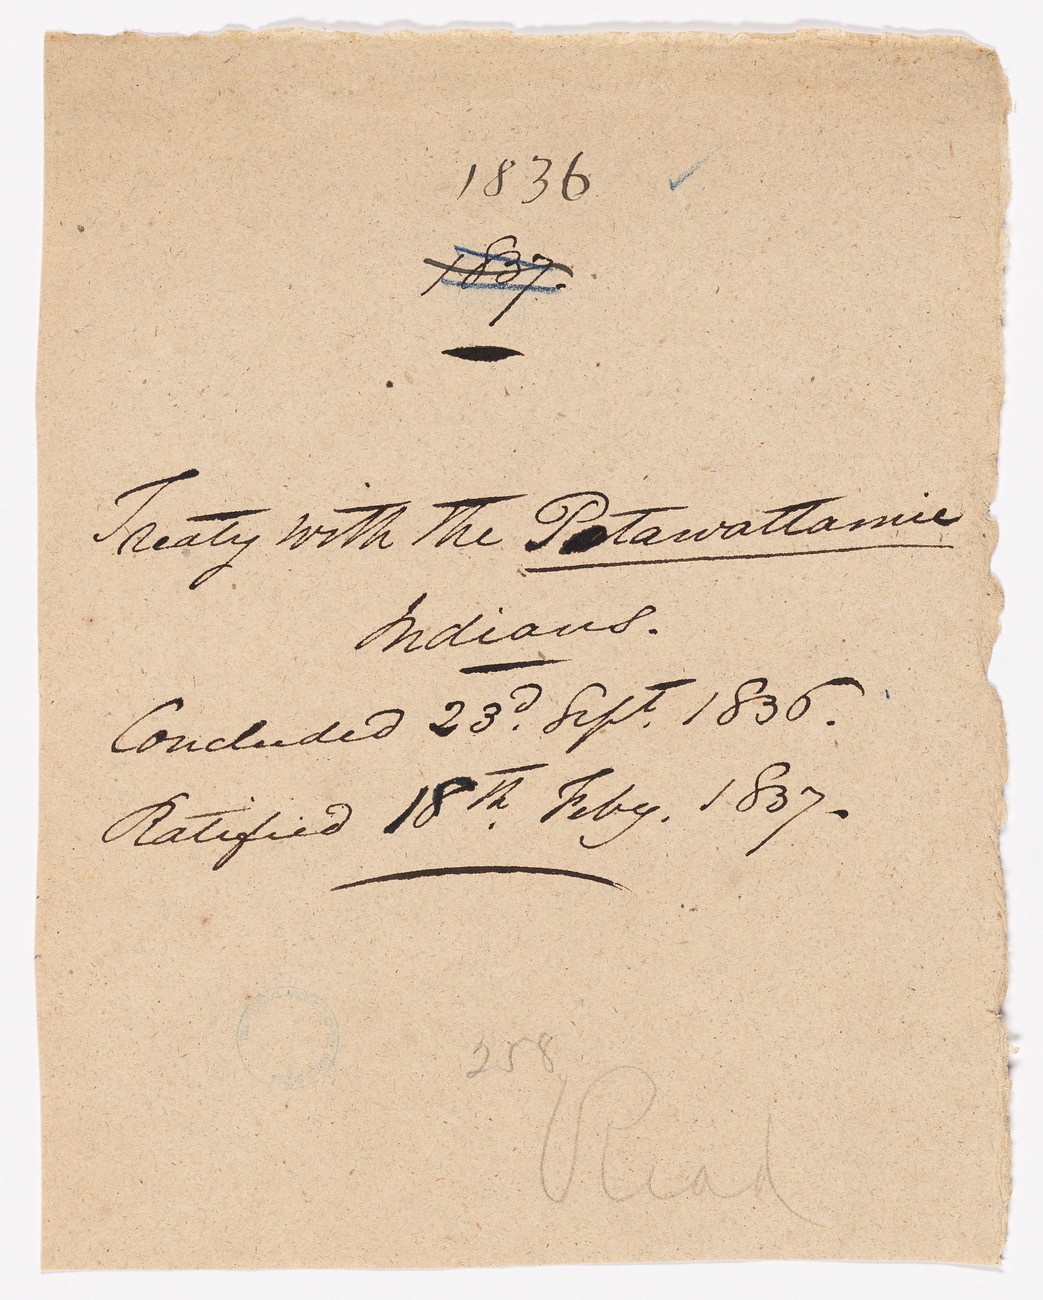 1836
1837.
Treaty with the Potawattamie
Indians.
Concluded 23d. Sept. 1836.
Ratified 18th. Feby. 1837.
258
Read